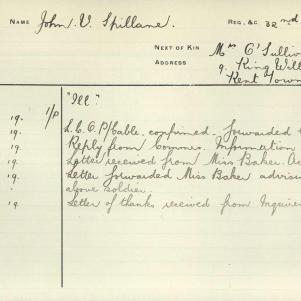 NAME John V. Spillane. REG. &C 32nd
NEXT OF KIN Mrs O'Sulliv
ADDRESS 9. King Will
Kent Town
"Ill."
19. 1/P L.C.C. P/Cable, confirmed. Forwarded t
19. Reply from Commrs. Information
19. Letter received from Miss Baker.
19. Letter forwarded Miss Baker advisi
above soldier.
19 Letter of thanks received from Inquire